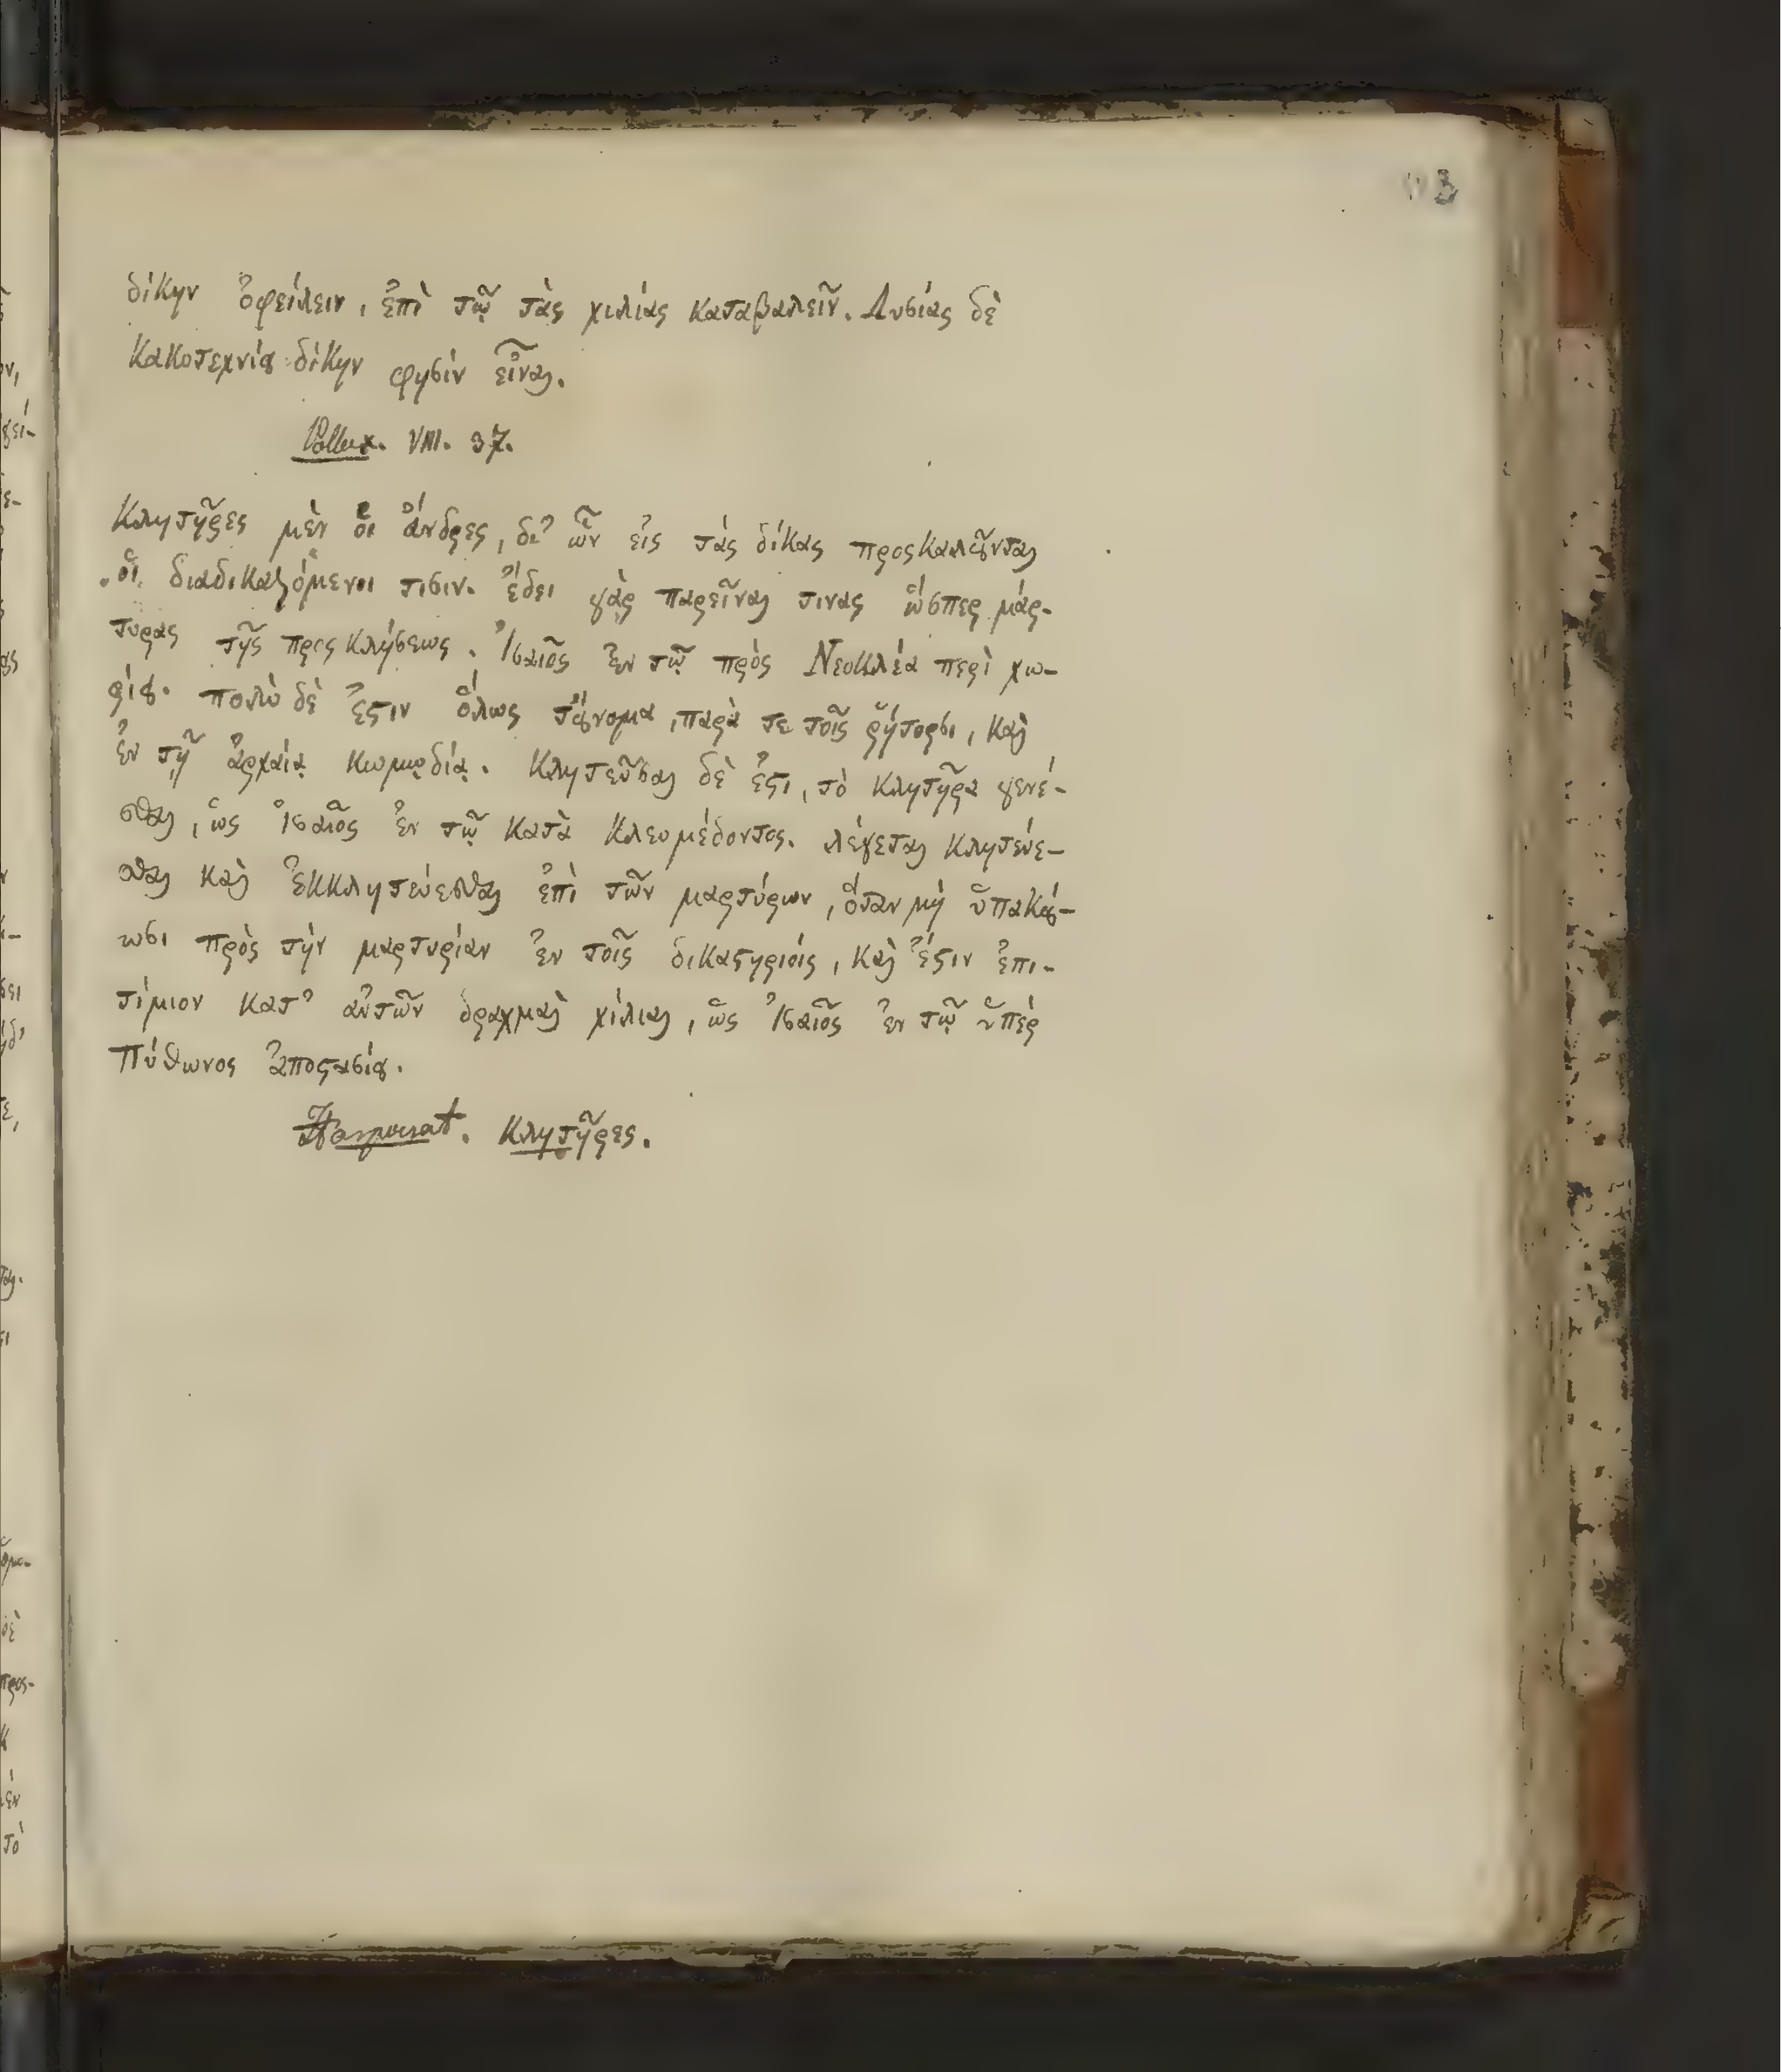 δίκην ὀφείλειν, ἐπὶ τῷ τὰς χιλίας καταβαλεῖν. Λυσίας δὲ
κακοτεχνίου δίκην φησὶν εἶναι.
Pollux. VIII. 37.
Κλητῆρες μὲν οἱ ἄνδρες, δι' ὧν εἰς τὰς δίκας προσκαλοῦνται
οἱ διαδικαζόμενοι τισιν. ἔδει γὰρ παρεῖναι τινας ὥσπερ μάρ-
τυρας τῆς προσκλήσεως. Ἰσαῖος ἐν τῷ πρὸς Νεοκλέα περὶ χω-
ρίου. πολὺ δὲ ἔστιν ὅλως τοὔνομα, παρά τε τοῖς ῥήτορσι, καὶ
ἐν τῇ ἀρχαίᾳ κωμῳδίᾳ. κλητεῦσαι δὲ ἔστι, τὸ κλητῆρα γενέ-
σθαι, ὡς Ἰσαῖος ἐν τῷ κατὰ Κλεομέδοντος. λέγεται κλητεύε-
σθαι καὶ ἐκκλητεύεσθαι ἐπὶ τῶν μαρτύρων, ὅταν μὴ ὑπακού-
ωσι πρὸς τὴν μαρτυρίαν ἐν τοῖς δικαστηρίοις, καὶ ἔστιν ἐπι-
τίμιον κατ' αὐτῶν δραχμαὶ χίλιαι, ὡς Ἰσαῖος ἐν τῷ ὑπὲρ
Πύθωνος ἀποστασίου.
Harpocrat. Κλητῆρες.